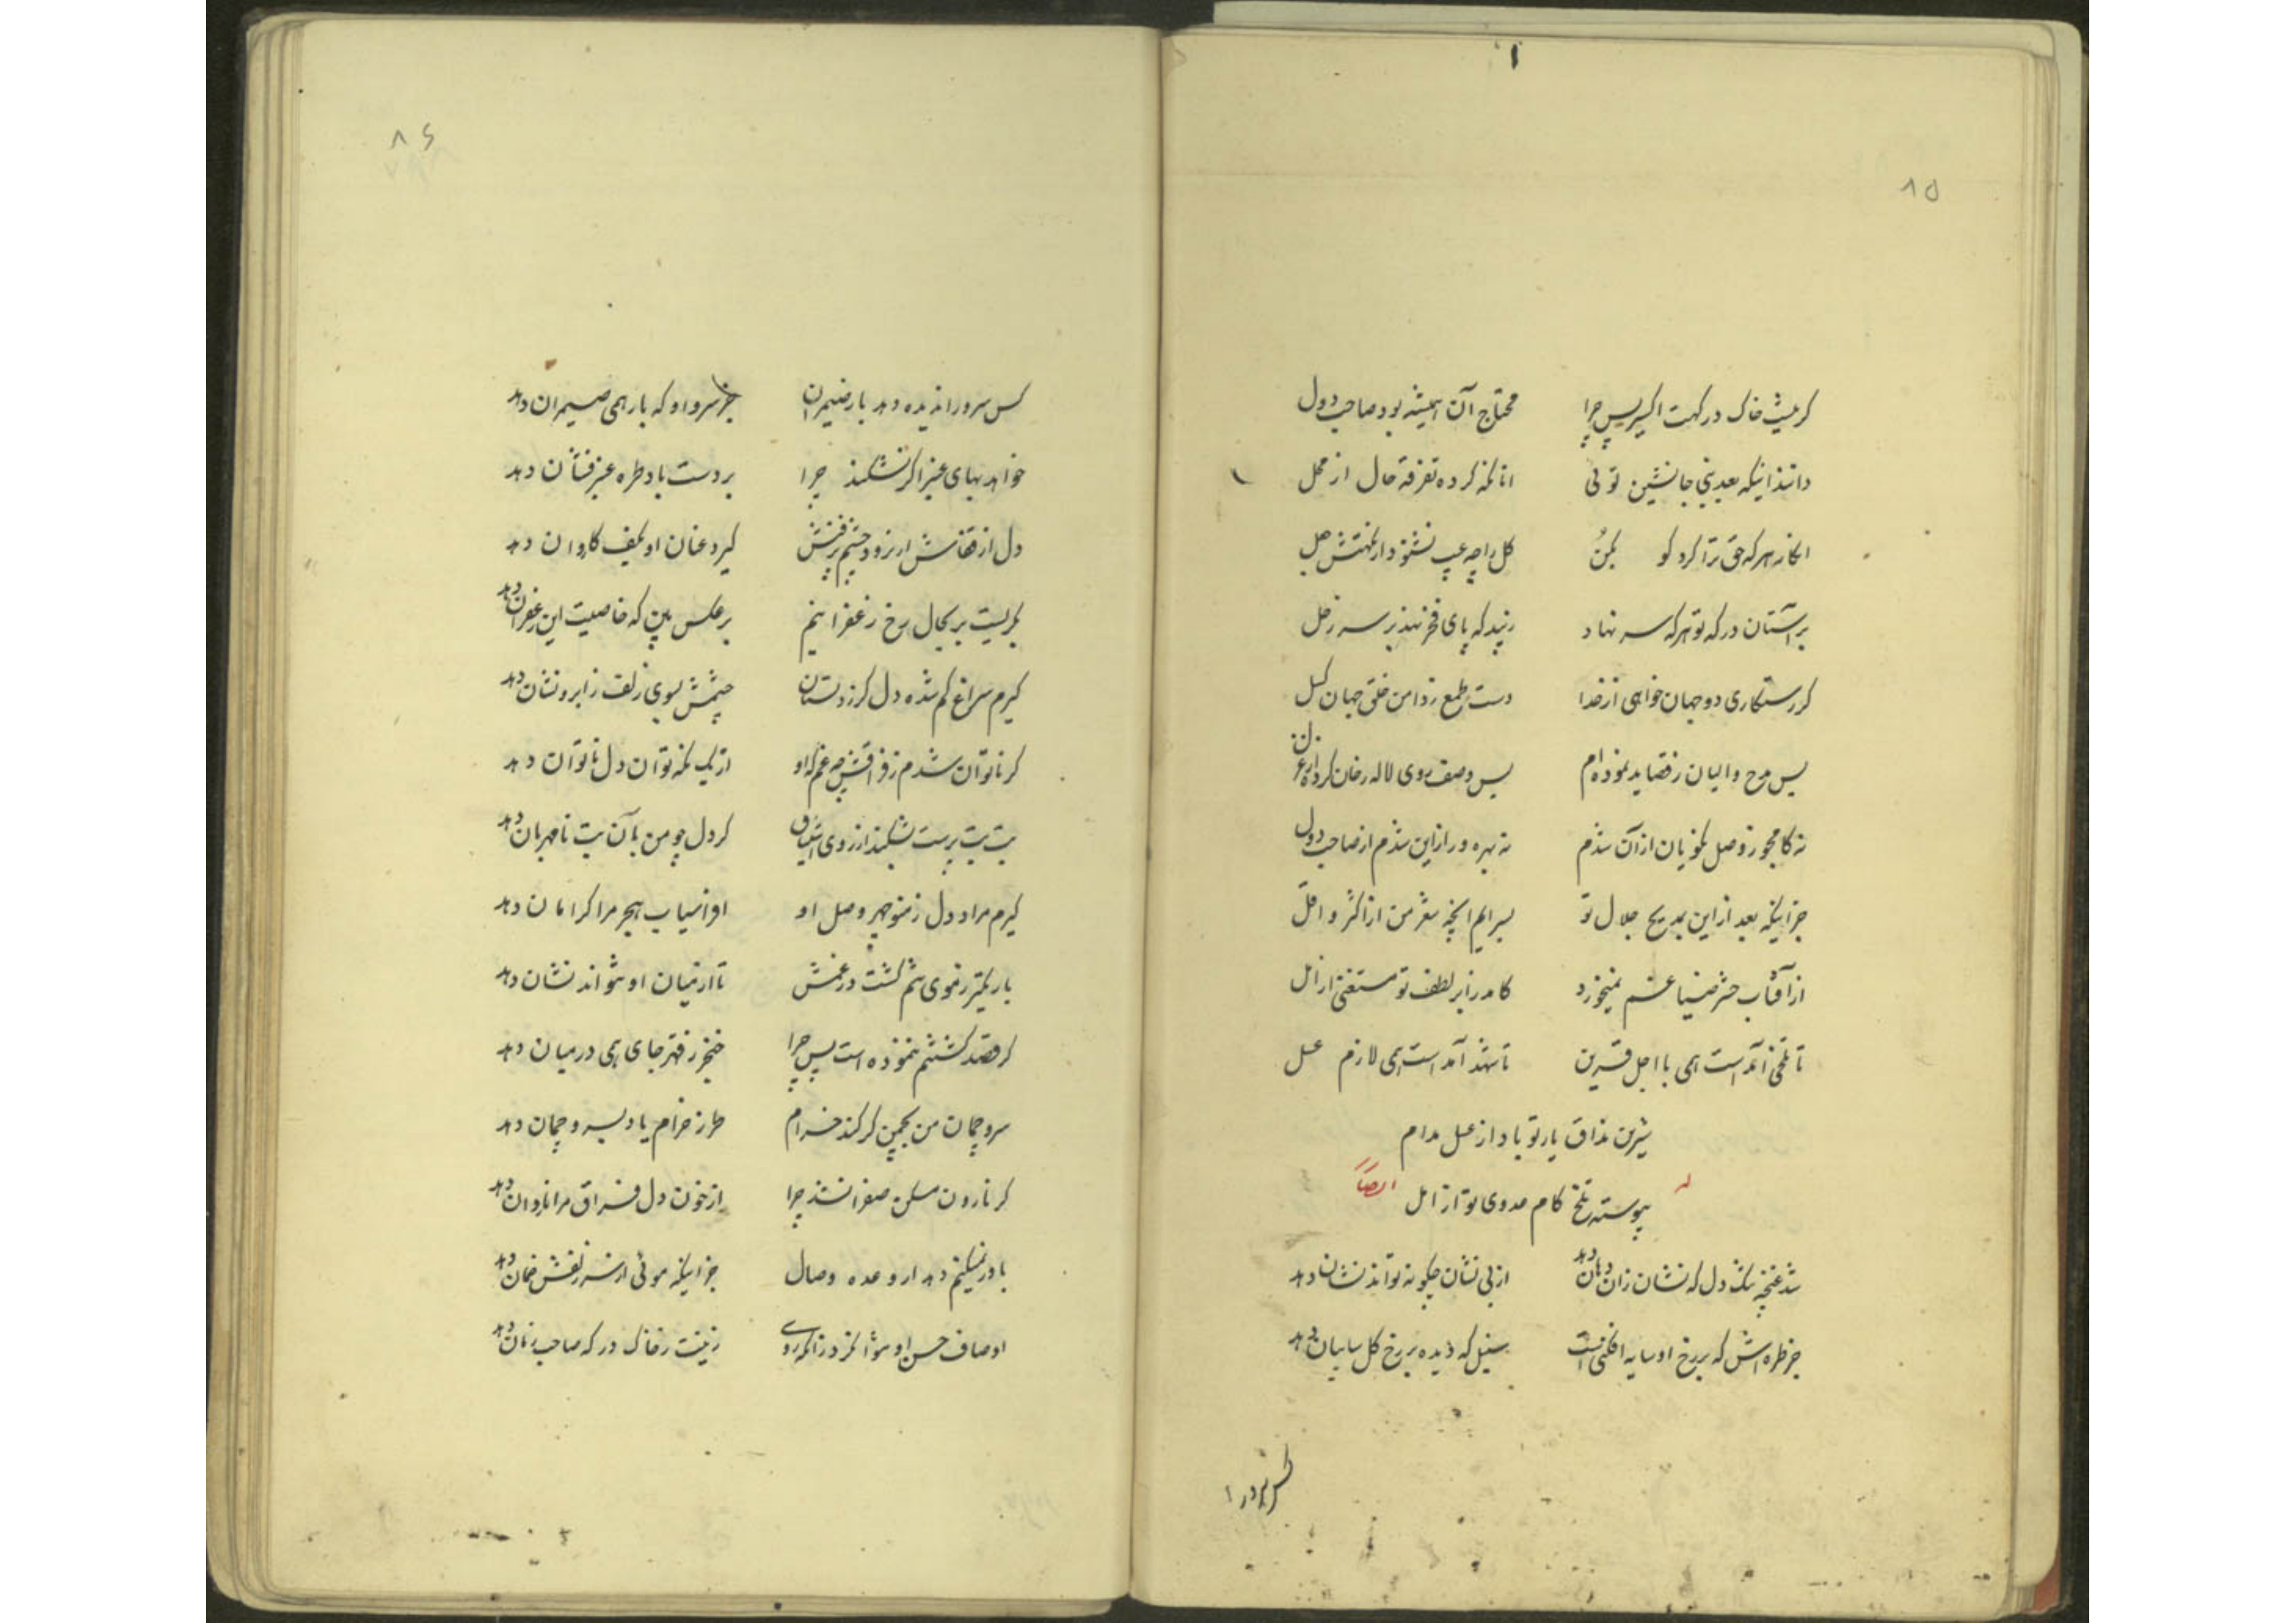 ۸۵
کر نیست خاک درکهت اکسیر پس چرا محتاج آن همیشه بود صاحب دول
دانند اینکه بعد نبی جانشین توئی انانکه کرده تفرقه حال از محل
انکار هر که حق ترا کرد کو بکن کل را چه عیب نشنود ار نکهتش جعل
بر آستان درکه تو هر که سر نهاد زیبد که پای فخر نهد بر سر زحل
کر رستکاری دو جهان خواهی از خدا دست طمع ز دامن خلق جهان کسل
بس مدح والیان ز قصاید نموده‌ام بس وصف روی لاله رخان کرده‌ام غزل
نه کامجو ز وصل نکویان از آن شدم نه بهره‌ور از این شدم از صاحب دول
جز اینکه بعد از این بمدیح جلال تو بسرایم آنچه شعر من از اکثر و اقل
از آفتاب حشر ضیا غم نمیخورد کامد ز ابر لطف تو مستغنی از ازل
تا تلخی آمد است همی با اجل قرین تا شهد آمد است همی لازم عسل
شیرین مذاق یار تو باد از عسل مدام
پیوسته تلخ کام عدوی تو از اجل
له ایضاً
شد غنچه تنک دل که نشان زان دهان دهد از بی نشان چکونه تواند نشان دهد
جز طره‌اش که بر رخ او سایه افکنست سنبل که دیده بر رخ کل سایبان دهد
کس سرو را
۸۶
کس سرو را ندیده دهد بار ضیمران جز سرو او که بار همی ضیمران دهد
خواهد بهای عنبر اکر نشکند چرا بر دست باد طره عنبر فشان دهد
دل از قفاش ار نرود چشم پر فنش کیرد عنان او بکف کاروان دهد
بکریست بر بحال رخ زعفرانیم برعکس بین که خاصیت این زعفران دهد
کیرم سراغ کم شده دل کر ز دلستان چشمش بسوی زلف ز ابرو نشان دهد
کر ناتوان شدم ز فراقش چه غم که او از یک نکه توان دل ناتوان دهد
بت بت پرست نشکند از روی اشتیاق کر دل چو من بآن بت نامهربان دهد
کیرم مراد دل ز منوچهر وصل او افراسیاب هجر مرا کر امان دهد
باریکتر ز موی تنم کشت در غمش تا از میان او بتواند نشان دهد
کر قصد کشتنم ننموده است پس چرا خنجر ز قهر جای همی در میان دهد
سرو چمان من بچمن کر کند خرام طرز خرام یاد بسرو چمان دهد
کر نارون مسکن صفرا نشد چرا از خون دل فراق مرا ناردان دهد
باور نمیکنم دهد ار وعده وصال جز اینکه موئی از سر زلفش ضمان دهد
اوصاف حسن او بتوانکرد زانکه روی زینت ز خاک درکه صاحب زمان دهد